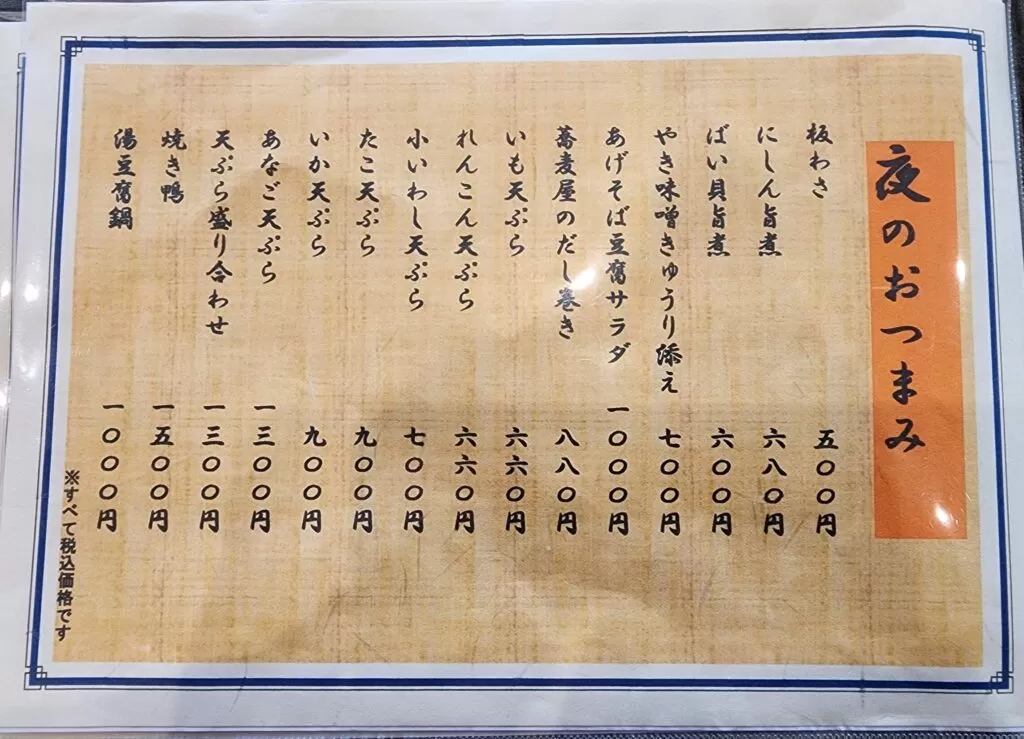 夜のおつまみ
板わさ 五〇〇円
にしん旨煮 六八〇円
ばい貝旨煮 六〇〇円
やき味噌きゅうり添え 七〇〇円
あげそば豆腐サラダ 一〇〇〇円
蕎麦屋のだし巻き 八八〇円
いも天ぷら 六六〇円
れんこん天ぷら 六六〇円
小いわし天ぷら 七〇〇円
たこ天ぷら 九〇〇円
いか天ぷら 九〇〇円
あなご天ぷら 一三〇〇円
天ぷら盛り合わせ 一三〇〇円
焼き鴨 一五〇〇円
湯豆腐鍋 一〇〇〇円
※すべて税込価格です